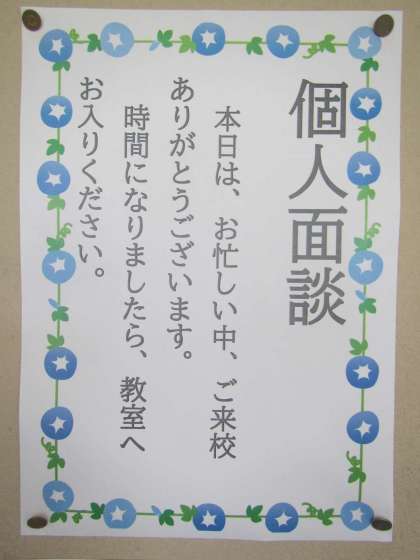 個人面談
本日は、お忙しい中、ご来校
ありがとうございます。
時間になりましたら、教室へ
お入りください。